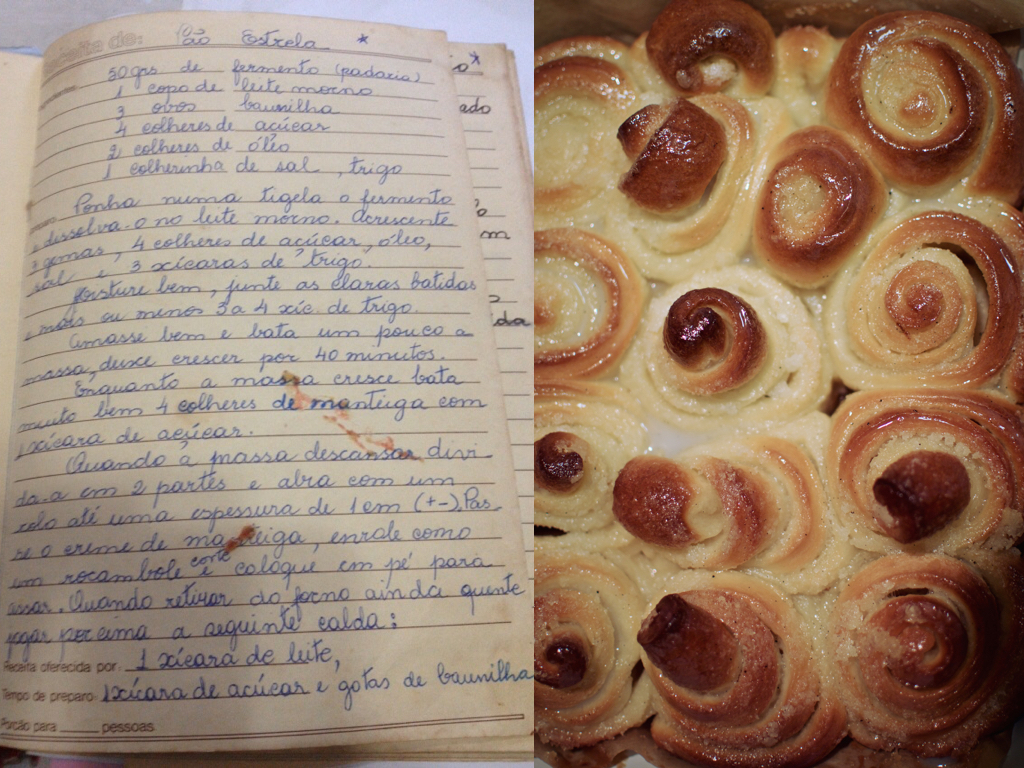 Receita de: Pão Estrela *
50 grs de fermento (padaria)
1 copo de leite morno
3 ovos baunilha
4 colheres de açúcar
2 colheres de óleo
1 colherinha de sal, trigo
Ponha numa tigela o fermento
e dissolva-o no leite morno. Acrescente
3 gemas, 4 colheres de açúcar, óleo,
sal e 3 xícaras de trigo.
Misture bem, junte as claras batidas
e mais ou menos 3 a 4 xíc. de trigo.
Amasse bem e bata um pouco a
massa, deixe crescer por 40 minutos.
Enquanto a massa cresce bata
muito bem 4 colheres de manteiga com
1 xícara de açúcar.
Quando a massa descansar divi-
da-a em 2 partes e abra com um
rolo até uma espessura de 1 cm (+-). Pas-
se o creme de manteiga, enrole como
um rocambole corte e coloque em pé para
assar. Quando retirar do forno ainda quente
jogar por cima a seguinte calda:
Receita oferecida por: 1 xícara de leite,
Tempo de preparo: 1 xícara de açúcar e gotas de baunilha
Porção para ______ pessoas
ado
m
da